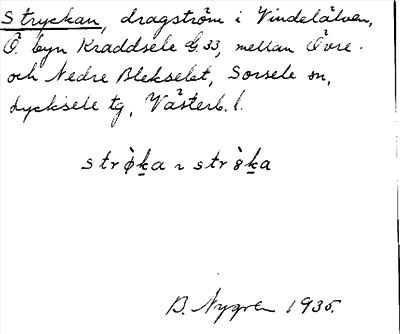 Stryckan, dragström i Vindelälven,
Ö. byn Kraddsele G 33, mellan Övre-
och Nedre Blekselet, Sorsele sn,
Lycksele tg, Västerb. l.
strø̀ka ~ strö̀ka
B. Nygren 1935.